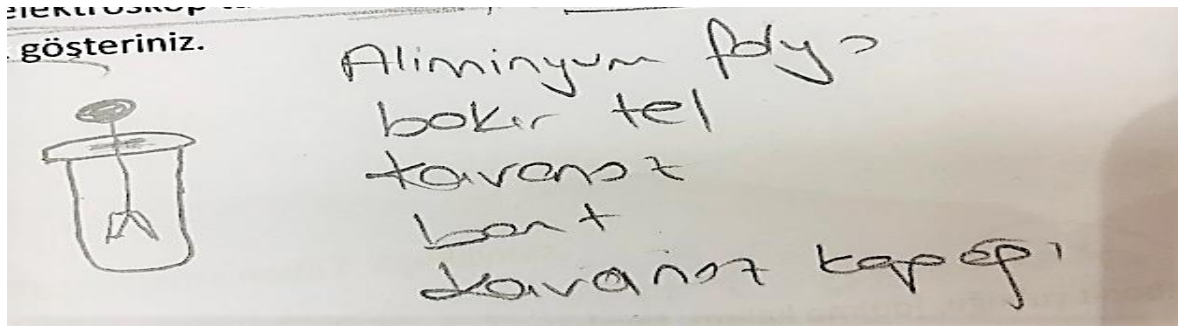 elektroskop
gösteriniz.
Aliminyum folyo
bakır tel
kavanoz
bant
kavanoz kapağı